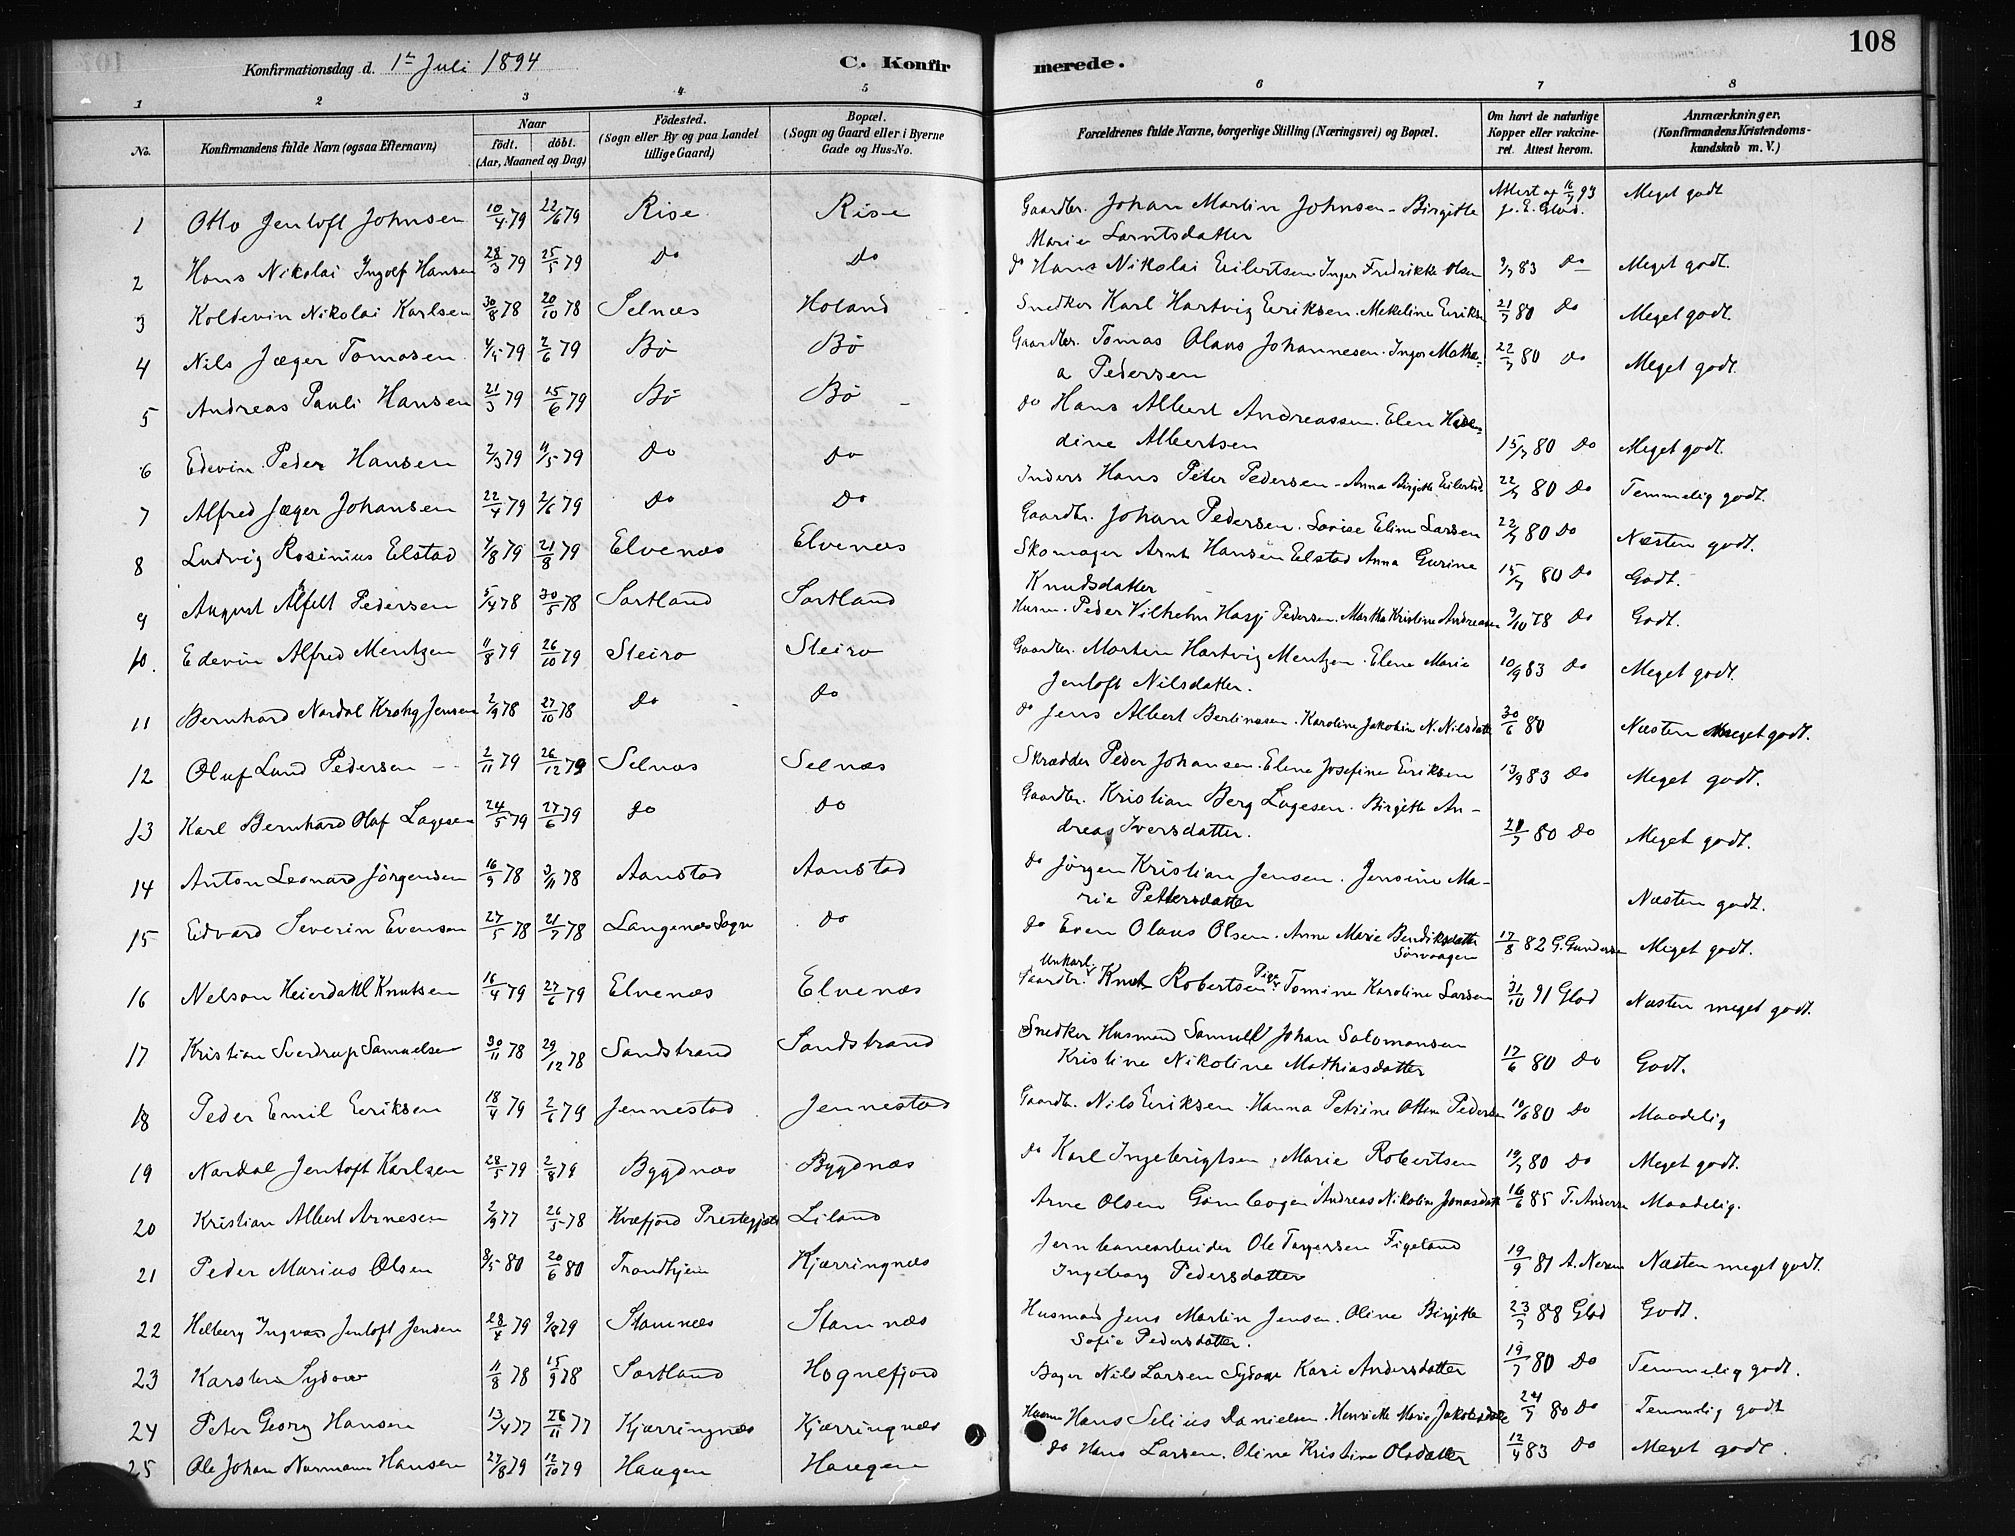 Konfirmationsdag d. 1ste Juli 1894
C. Konfirmerede.
108
1 2 3 4 5 6 7 8
No.
Konfirmandens fulde Navn (ogsaa Efternavn)
Naar
födt. döbt.
(Aar, Maaned og Dag)
Födested.
(Sogn eller By og paa Landet tillige Gaard)
Bopæl.
(Sogn og Gaard eller i Byerne Gade og Hus-No.
Forældrenes fulde Navne, borgerlige Stilling (Næringsvei) og Bopæl.
Om havt de naturlige Kopper eller vakcineret. Attest herom.
Anmærkninger.
(Konfirmandens Kristendomskundskab m. V.)
1 Otto Jentoft Johnsen 10/4 79 22/6 79 Rise Rise Gaardbr. Johan Martin Johnsen - Birgitte Marie Larntsdatter Attest af 16/7 93 Meget godt
2 Hans Nikolai Ingolf Hansen 28/3 79 25/5 79 do do do Hans Nikolai Eilertsen Inger Fredrikke Olsen 9/7 83 do Meget godt.
3 Koldevin Nikolai Karlsen 30/8 78 20/10 78 Selnæs Holand Snedker Karl Hartvig Eeriksen. Mekeline Eeriks 21/7 80 do Meget godt.
4 Nils Jæger Tomasen 4/5 79 2/6 79 Bö Bö Gaardbr. Tomas Olaus Johannesen. Inger Mathea Pedersen 22/7 80 do Meget godt.
5 Andreas Pauli Hansen 21/3 79 15/6 79 Bö Bö do Hans Albert Andreassen. Elen Hedine Albertsen 15/7 80 do Meget godt.
6 Edevin Peder Hansen 2/3 79 11/5 79 do do Inders Hans Peter Pedersen - Anna Birgitte Eilertsd 22/7 80 do Temmelig godt.
7 Alfred Jæger Johansen 22/4 79 2/6 79 do do Gaardbr. Johan Pedersen. Lovise Eline Larsen 22/7 80 do Næsten godt.
8 Ludvig Rosinius Eilstad 4/8 79 21/8 79 Elvenæs Elvenæs Skomager Arnt Hansen Eelstad Anna Gurine Knudsdatter 15/7 80 do Godt.
9 August Alfelt Pedersen 5/4 78 30/5 78 Sortland Sortland Husm. Peder Vilhelm Hasji Pedersen. Martha Kristine Andreasen 9/10 78 do Godt.
10. Edevin Alfred Mentzen 11/8 79 26/10 79 Steiro Steiro Gaardbr. Martin Hartvig Mentzen. Elene Marie Jentoft Nilsdatter. 10/9 83 do Meget godt.
11 Bernhard Nordal Krohg Jensen 2/9 78 27/10 78 do do do Jens Albert Bertinusen. Karoline Jakobine N. Nilsdatt 30/6 80 Næsten meget godt.
12 Oluf Lund Pedersen 2/11 79 26/12 79 Selnæs Selnæs Skrædder Peder Johansen. Elene Josefine Eriksen 13/9 83 do Meget godt.
13 Karl Bernhard Olaf Lagesen 24/5 79 27/6 79 do do Gaardbr. Kristian Berg Lagesen. Birgitte Andreas Iversdatter. 21/7 80 do Meget godt.
14 Anton Leonard Jörgensen 16/9 78 3/11 78 Aanstad Aanstad do Jörgen Kristian Jensen. Jensine Marie Pettersdatter Næsten godt.
15 Edvard Severin Evensen 27/5 78 21/7 78 Langenes Sogn do do Even Olaus Olsen. Anne Marie Bendiksdatter Sörvaagen 17/8 82 G. Gundersen Meget godt.
16 Nelson Heierdahl Knutsen 16/4 79 27/6 79 Elvenæs Elvenæs Gaardbr. Unkarl. Knut Robertsen. Pige Tomine Karoline Larsen 31/10 91 Glad Næsten meget godt.
17 Kristian Sverdrup Samuelsen 30/11 78 29/12 78 Sandstrand Sandstrand Snedker Husmand Samuel Johan Salomonsen Kristine Nikoline Mathiasdatter 17/6 80 do Godt.
18 Peder Emil Eeriksen 18/4 79 2/6 79 Jennestad Jennestad Gaardbr. Nils Eeriksen. Hanna Petrine Ottine Pedersen 10/6 80 do Maadelig
19 Nordal Jentoft Karlsen 28/5 79 2/8 79 Bygdnæs Bygdnæs do Karl Ingebrigtsen, Marie Robertsen 19/7 80 do Meget godt.
20 Kristian Albert Arnesen 2/9 77 26/5 78 Kvæfjord Prestegjæld Liland Arne Olsen Gamboger Andreas Nikoline Jonasdatt 16/6 85 T. Andersen Maadelig.
21 Peder Marius Olsen 8/5 80 20/6 80 Trondhjem Kjærringnæs Jernbanearbeider Ole Torgersen Figeland Ingeborg Pedersdatter 19/9 81 A. Neren Næsten meget godt.
22 Helberg Ingvar Jentoft Jensen 28/4 79 3/8 79 Stamnæs Stamnæs Husmand Jens Martin Jensen. Oline Birgitte Sofie Pedersdatter. 23/7 88 Glad Godt.
23 Karsten Sydow 11/8 78 15/9 78 Sortland Hognefjord Bager Nils Larsen Sydow Kari Andersdatter 19/7 80 do Temmelig godt.
24 Peter Georg Hansen 13/4 77 26/11 77 Kjærringnæs Kjærringnæs Husm Hans Selius Danielsen. Henriette Marie Jakobsdatter 24/7 80 do Temmelig godt
25 Ole Johan Normann Hansen 27/8 79 12/10 79 Haugen Haugen do Hans Larsen. Oline Kristine Olsdatter 12/4 83 do Meget godt.